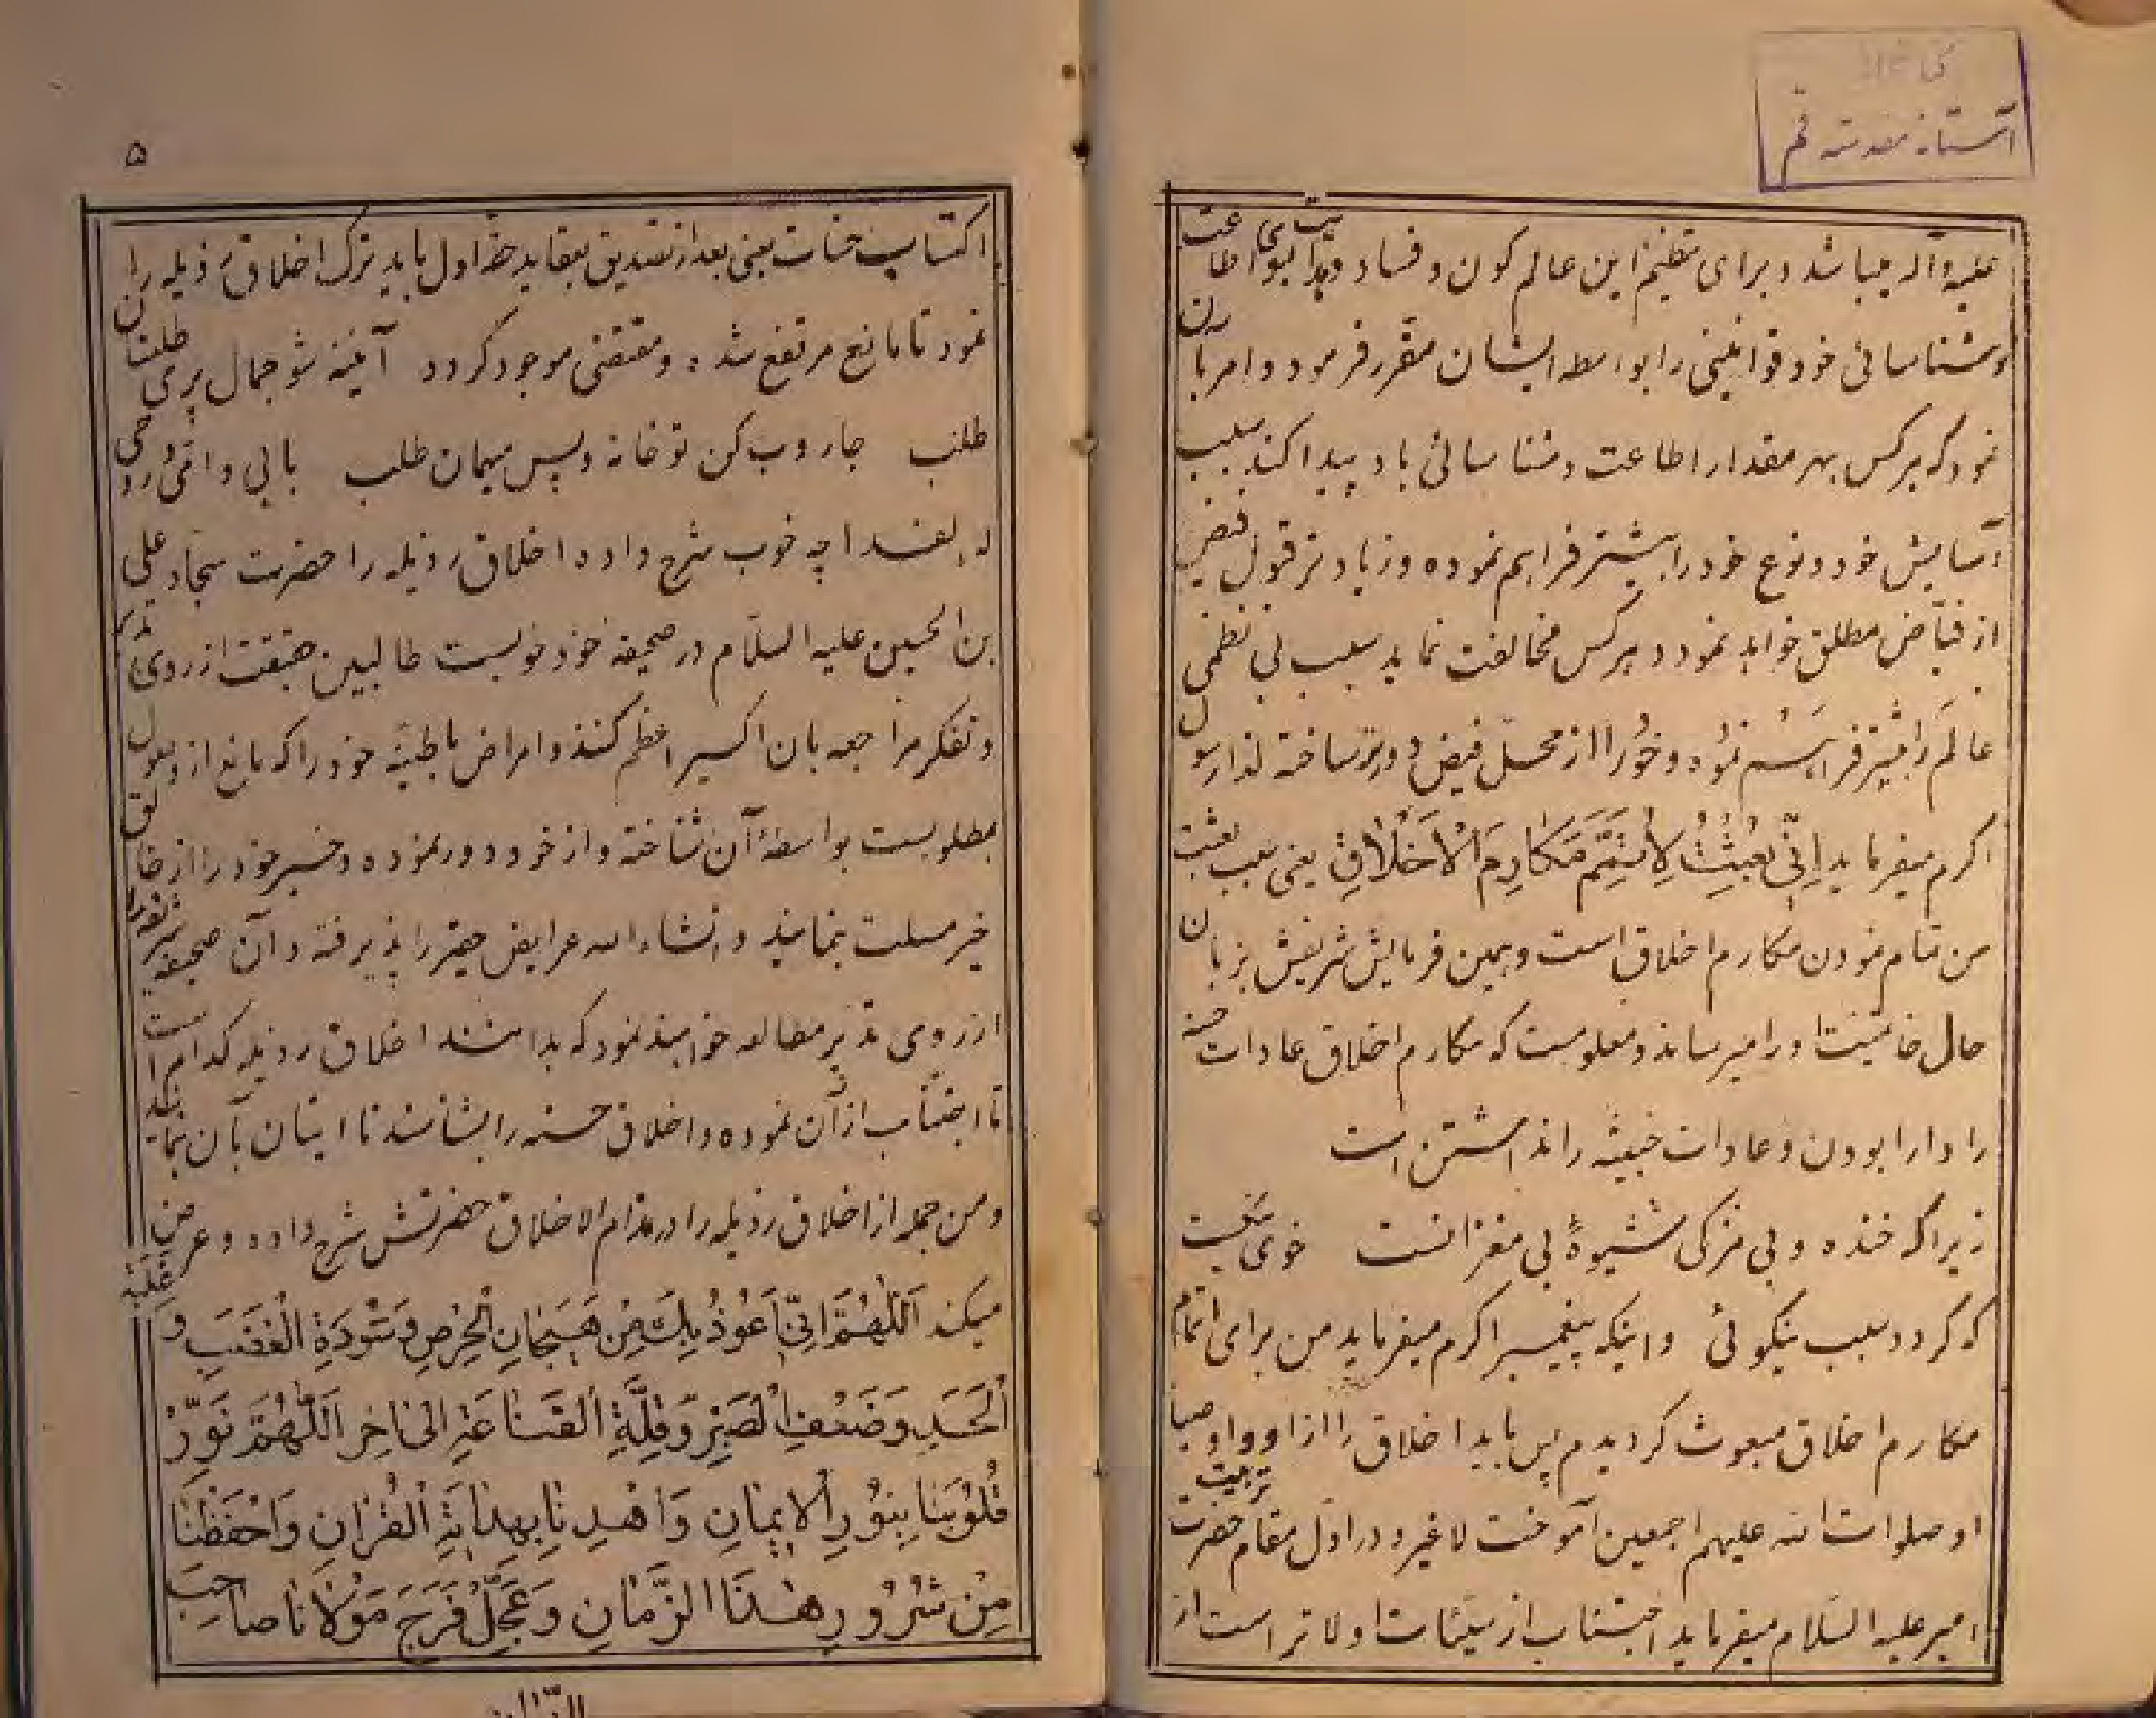 آستانه مقدسه قم
علیه وآله میباشد و برای تنظیم این عالم کون و فساد و هدایت بسوی اطاعت
و شناسائی خود قوانینی را بواسطه ایشان مقرر فرمود و امر بان
نمود که هر کس بهر مقدار اطاعت و شناسائی باو پیدا کند سبب
آسایش خود و نوع خود را بیشتر فراهم نموده و زیادتر قبول فیض
از فیاض مطلق خواهد نمود و هر کس مخالفت نماید سبب بی نظمی
عالم را بیشتر فراهم نموده و خود را از محل فیض دورتر ساخته لذا رسول
اکرم میفرماید اِنّی بُعِثْتُ لِاُتَمِّمَ مَکَارِمَ الْاَخْلَاقِ یعنی سبب بعثت
من تمام نمودن مکارم اخلاق است و همین فرمایش شریفش بزبان
حال خاتمیت او را میرساند و معلومست که مکارم اخلاق عادات حسنه
را دارا بودن و عادات خبیثه را نداشتن است
زیرا که خنده و بی مزگی شیوهٔ بی مغزانست خوی
که گردد سبب نیکوئی و اینکه پیغمبر اکرم میفرماید من برای اتمام
مکارم اخلاق مبعوث گردیدم پس باید اخلاق را از او و اوصیا
او صلوات الله علیهم اجمعین آموخت لا غیر و در اول مقام تربیت حضرت
امیر علیه السلام میفرماید اجتناب از سیئات اولاتر است از
۵
اکتساب حسنات یعنی بعد از تصدیق بعقاید حقه اول باید ترک اخلاق رذیله را
نمود تا مانع مرتفع شده و مقتضی موجود گردد آئینه شو جمال پری طلعتان
طلب جاروب کن تو خانه و پس میهمان طلب بابی و امی و روحی
له الفدا چه خوب شرح داده اخلاق رذیله را حضرت سجاد علی
بن الحسین علیه السلام در صحیفه خود خوبست طالبین حقیقت از روی تدبر
و تفکر مراجعه بان اکسیر اعظم کنند و امراض باطنیه خود را که مانع از وصول
بمطلوبست بواسطهٔ آن شناخته و از خود دور نموده و خیر خود را از خالق
خیر مسئلت بنمایند و انشاء الله عرایض حقیر را پذیرفته و آن صحیفه
از روی تدبر مطالعه خواهند نمود که بدانند اخلاق رذیله کدام است
تا اجتناب از آن نموده و اخلاق حسنه را بشناسند تا اتیان بآن نمایند
و من جمله از اخلاق رذیله را در مذام الاخلاق حضرتش شرح داده و عرض
میکند اَللّٰهُمَّ اِنّی اَعُوذُ بِكَ مِنْ هَیَجَانِ الْحِرْصِ وَسَوْرَةِ الْغَضَبِ وَ غَلَبَةِ
الْحَسَدِ وَضَعْفِ الْصَبْرِ وَقِلَّةِ الْقَنَاعَةِ الی اخِر اَللّٰهُمَّ نَوِّرْ
قُلُوبَنَا بِنُورِ الْاِیمَانِ وَاهْدِنَا بِهِدَایَةِ الْقُرْانِ وَاحْفَظْنَا
مِنْ شُرُورِ هٰذَا الزَّمَانِ وَعَجِّلْ فَرَجَ مَوْلَانَا صَاحِب
الزمان